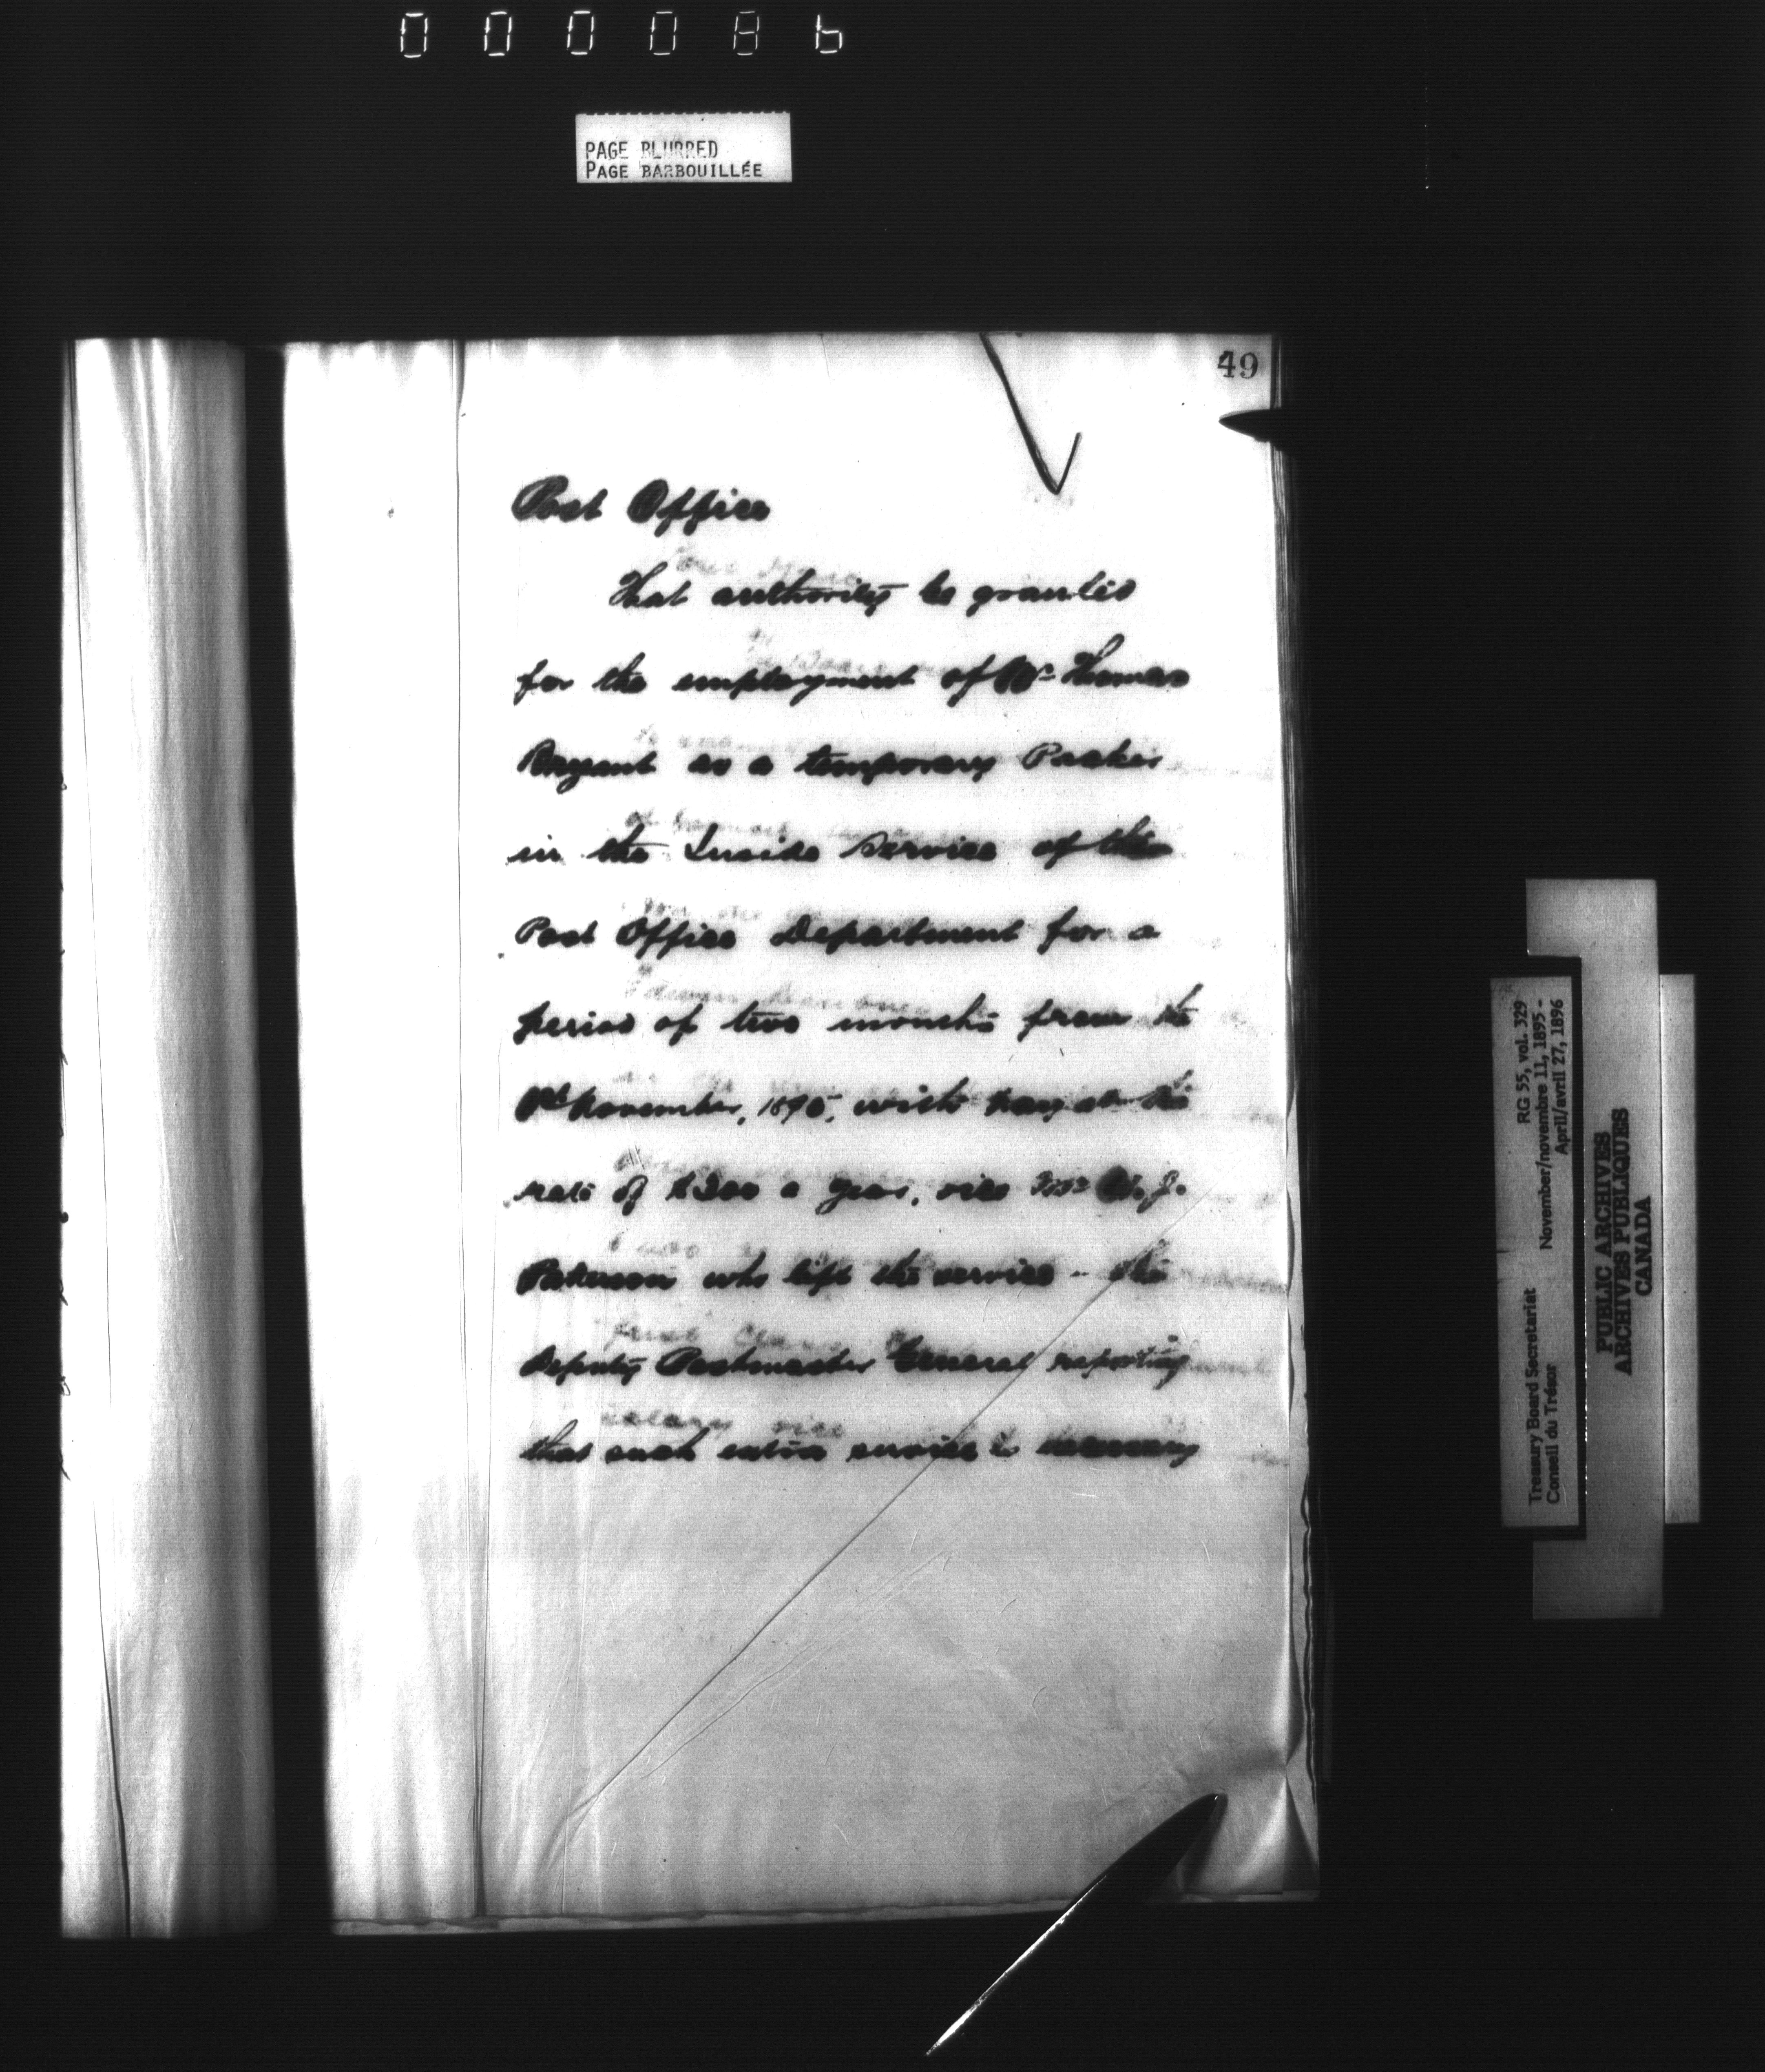 00008b
PAGE BLURRED
PAGE BARBOUILLÉE
49
Post Office
That authority be granted
for the employment of Mr Thomas
Bryant as a temporary Packer
in the Inside Service of the
Post Office Department for a
period of two months from the
November, 1895, with pay at the
rate of $300 a year, vice W. J.
Paterson who left the service - the
Deputy Postmaster General reporting
that such extra service is necessary
Treasury Board Secretariat RG 55, vol. 329
Conseil du Trésor November/novembre 11, 1895 -
April/avril 27, 1896
PUBLIC ARCHIVES
ARCHIVES PUBLIQUES
CANADA